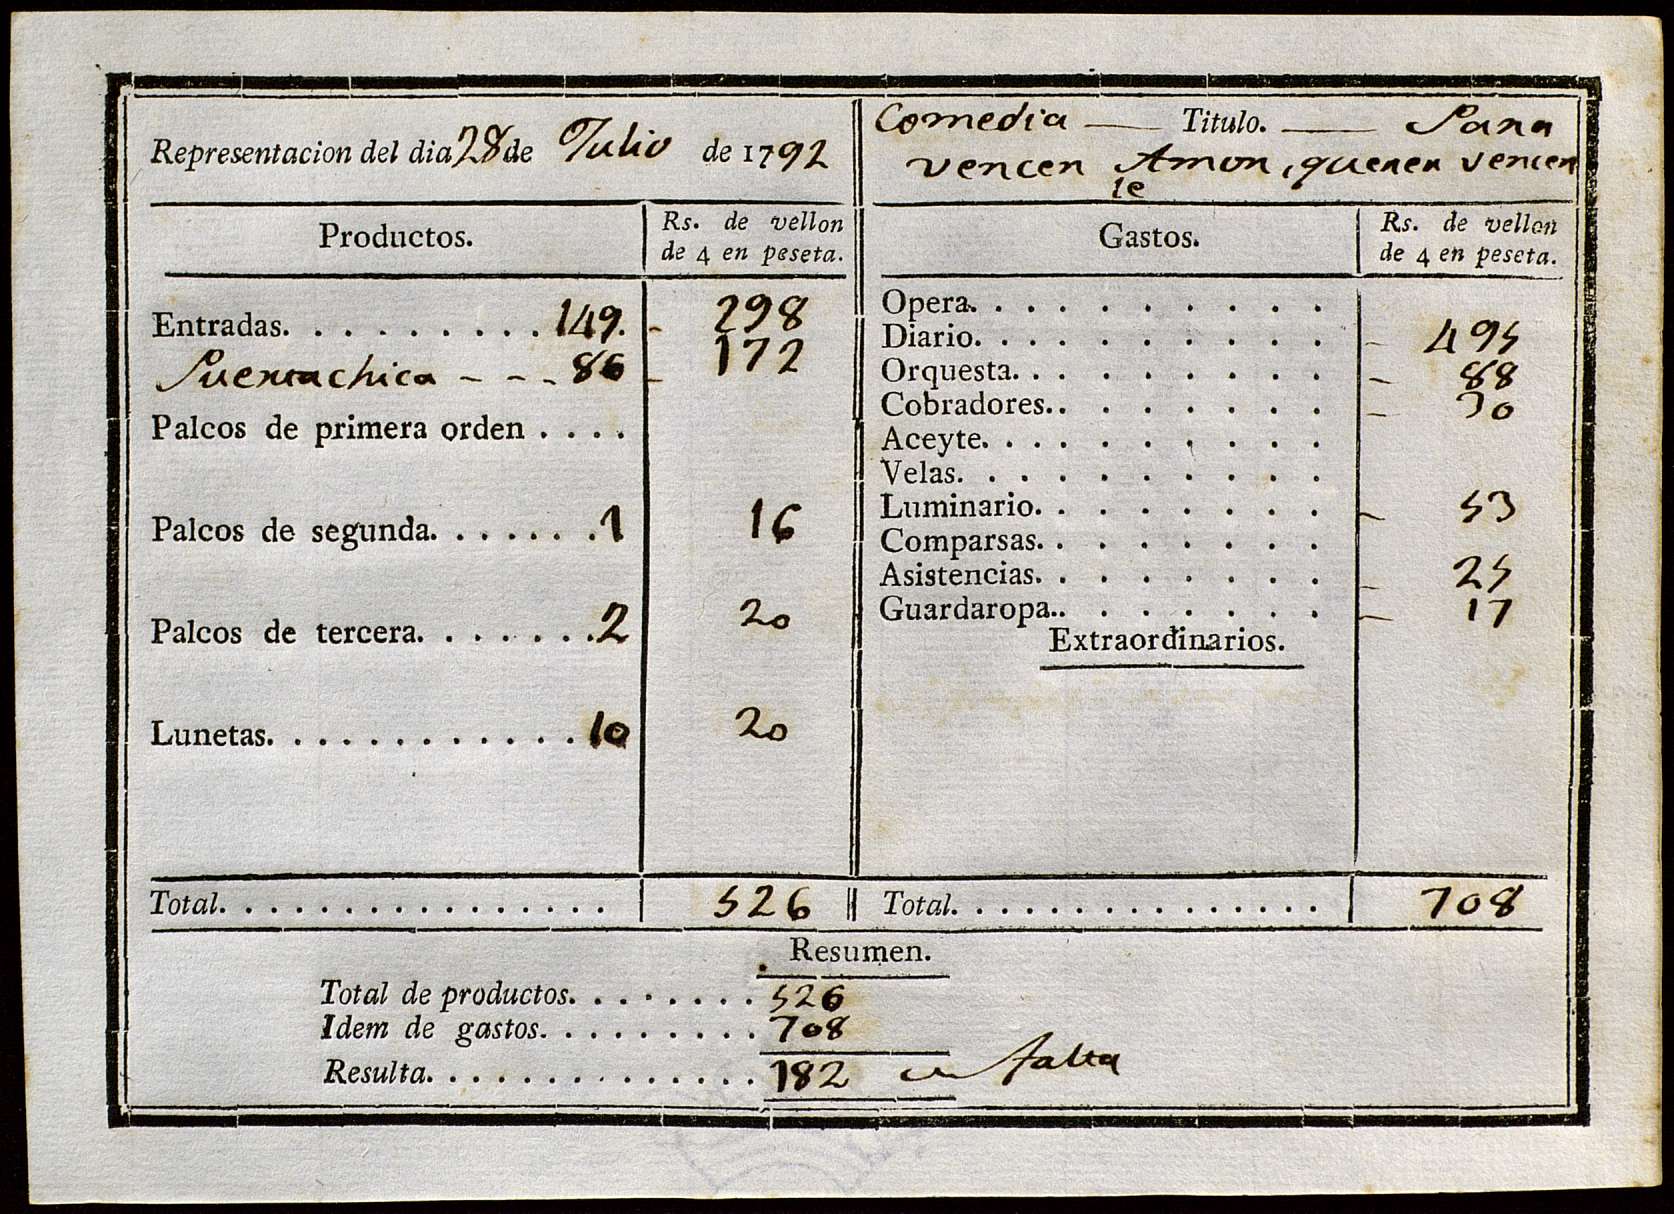 Representacion del dia 28 de Julio de 1792
Comedia — Titulo. — Para
vencer Amor, querer vencer
le
Productos.
Rs. de vellon
de 4 en peseta.
Entradas. . . . . . . . . . 149. - 298
Puertachica - - - 86 - 172
Palcos de primera orden . . . .
Palcos de segunda. . . . . . . 1 16
Palcos de tercera. . . . . . . 2 20
Lunetas. . . . . . . . . . . . . 10 20
Total. . . . . . . . . . . . . . . . 526
Gastos.
Rs. de vellon
de 4 en peseta.
Opera. . . . . . . . . .
Diario. . . . . . . . . . - 495
Orquesta. . . . . . . . . - 88
Cobradores. . . . . . . . - 30
Aceyte. . . . . . . . . .
Velas. . . . . . . . . .
Luminario. . . . . . . . - 53
Comparsas. . . . . . . .
Asistencias. . . . . . . . - 25
Guardaropa. . . . . . . . - 17
Extraordinarios.
Total. . . . . . . . . . . . . . . 708
Resumen.
Total de productos. . . . . . . . 526
Idem de gastos. . . . . . . . . 708
Resulta. . . . . . . . . . . . . 182 — falta